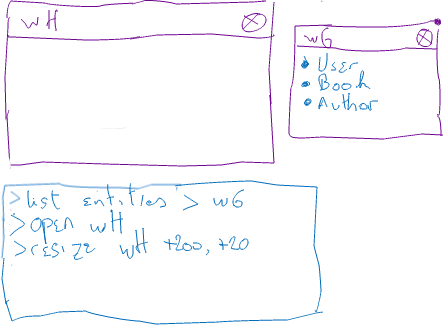 wH
wG
• User
• Book
• Author
>list entities > wG
>open wH
>resize wH +200, +20